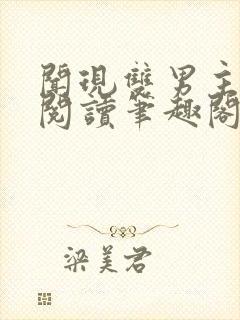 聞現襲男主
閱讀筆趣閣
梁美君